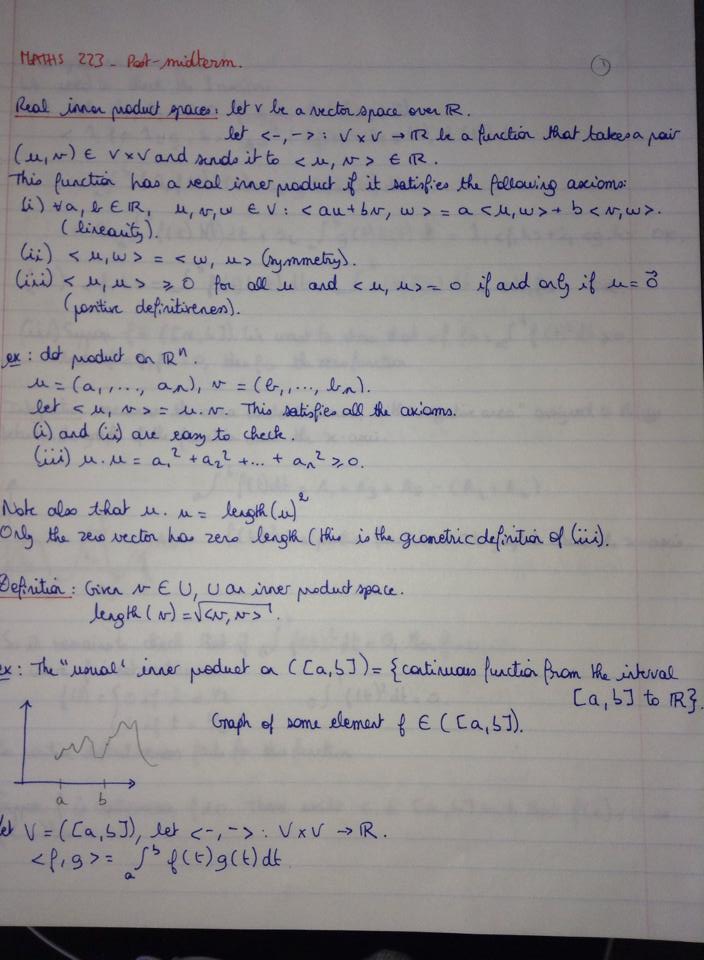 MATHS 223 - Post-midterm.
①
Real inner product spaces: let V be a vector space over ℝ.
let <-,->: V×V → ℝ be a function that takes a pair
(u,v) ∈ V×V and sends it to <u, v> ∈ ℝ.
This function has a real inner product if it satisfies the following axioms:
(i) ∀a, b ∈ ℝ, u,v,w ∈ V: <au+bv, w> = a<u,w> + b<v,w>.
(linearity).
(ii) <u,w> = <w, u> (symmetry).
(iii) <u, u> ≥ 0 for all u and <u, u> = 0 if and only if u = 0⃗
(positive definitiveness).
ex: dot product on ℝⁿ.
u = (a₁,..., aₙ), v = (b₁,..., bₙ).
let <u, v> = u.v. This satisfies all the axioms.
(i) and (ii) are easy to check.
(iii) u.u = a₁² + a₂² + ... + aₙ² ≥ 0.
Note also that u. u = length(u)²
Only the zero vector has zero length (this is the geometric definition of (iii).
Definition: Given v ∈ U, U an inner product space.
length(v) = √<v, v>.
ex: The "usual" inner product on C([a,b]) = {continuous function from the interval
[a,b] to ℝ}.
Graph of some element f ∈ C([a,b]).
a b
let V = C([a,b]), let <-,->: V×V → ℝ.
<f,g> = ₐ∫ᵇ f(t)g(t)dt.